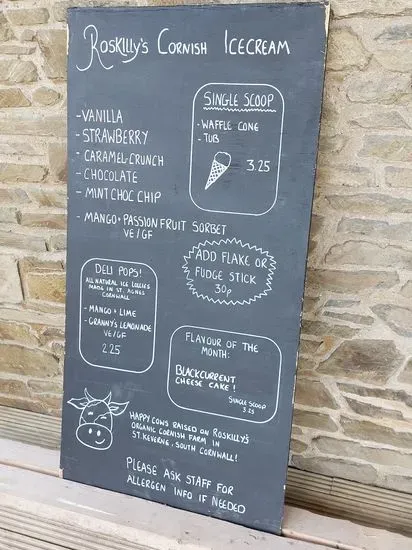 Roskilly's Cornish Icecream
- Vanilla
- Strawberry
- Caramel Crunch
- Chocolate
- Mint Choc Chip
- Mango + Passion Fruit Sorbet
VE/GF
Single Scoop
- Waffle Cone
- Tub
3.25
Add Flake or
Fudge Stick
30p
Deli Pops!
All Natural Ice Lollies
Made in St. Agnes
Cornwall
- Mango + Lime
- Granny's Lemonade
VE/GF
2.25
Flavour of the
Month:
Blackcurrent
Cheese Cake!
Single Scoop
3.25
Happy Cows Raised on Roskilly's
Organic Cornish Farm in
St. Keverne, South Cornwall!
Please Ask Staff for
Allergen Info if Needed